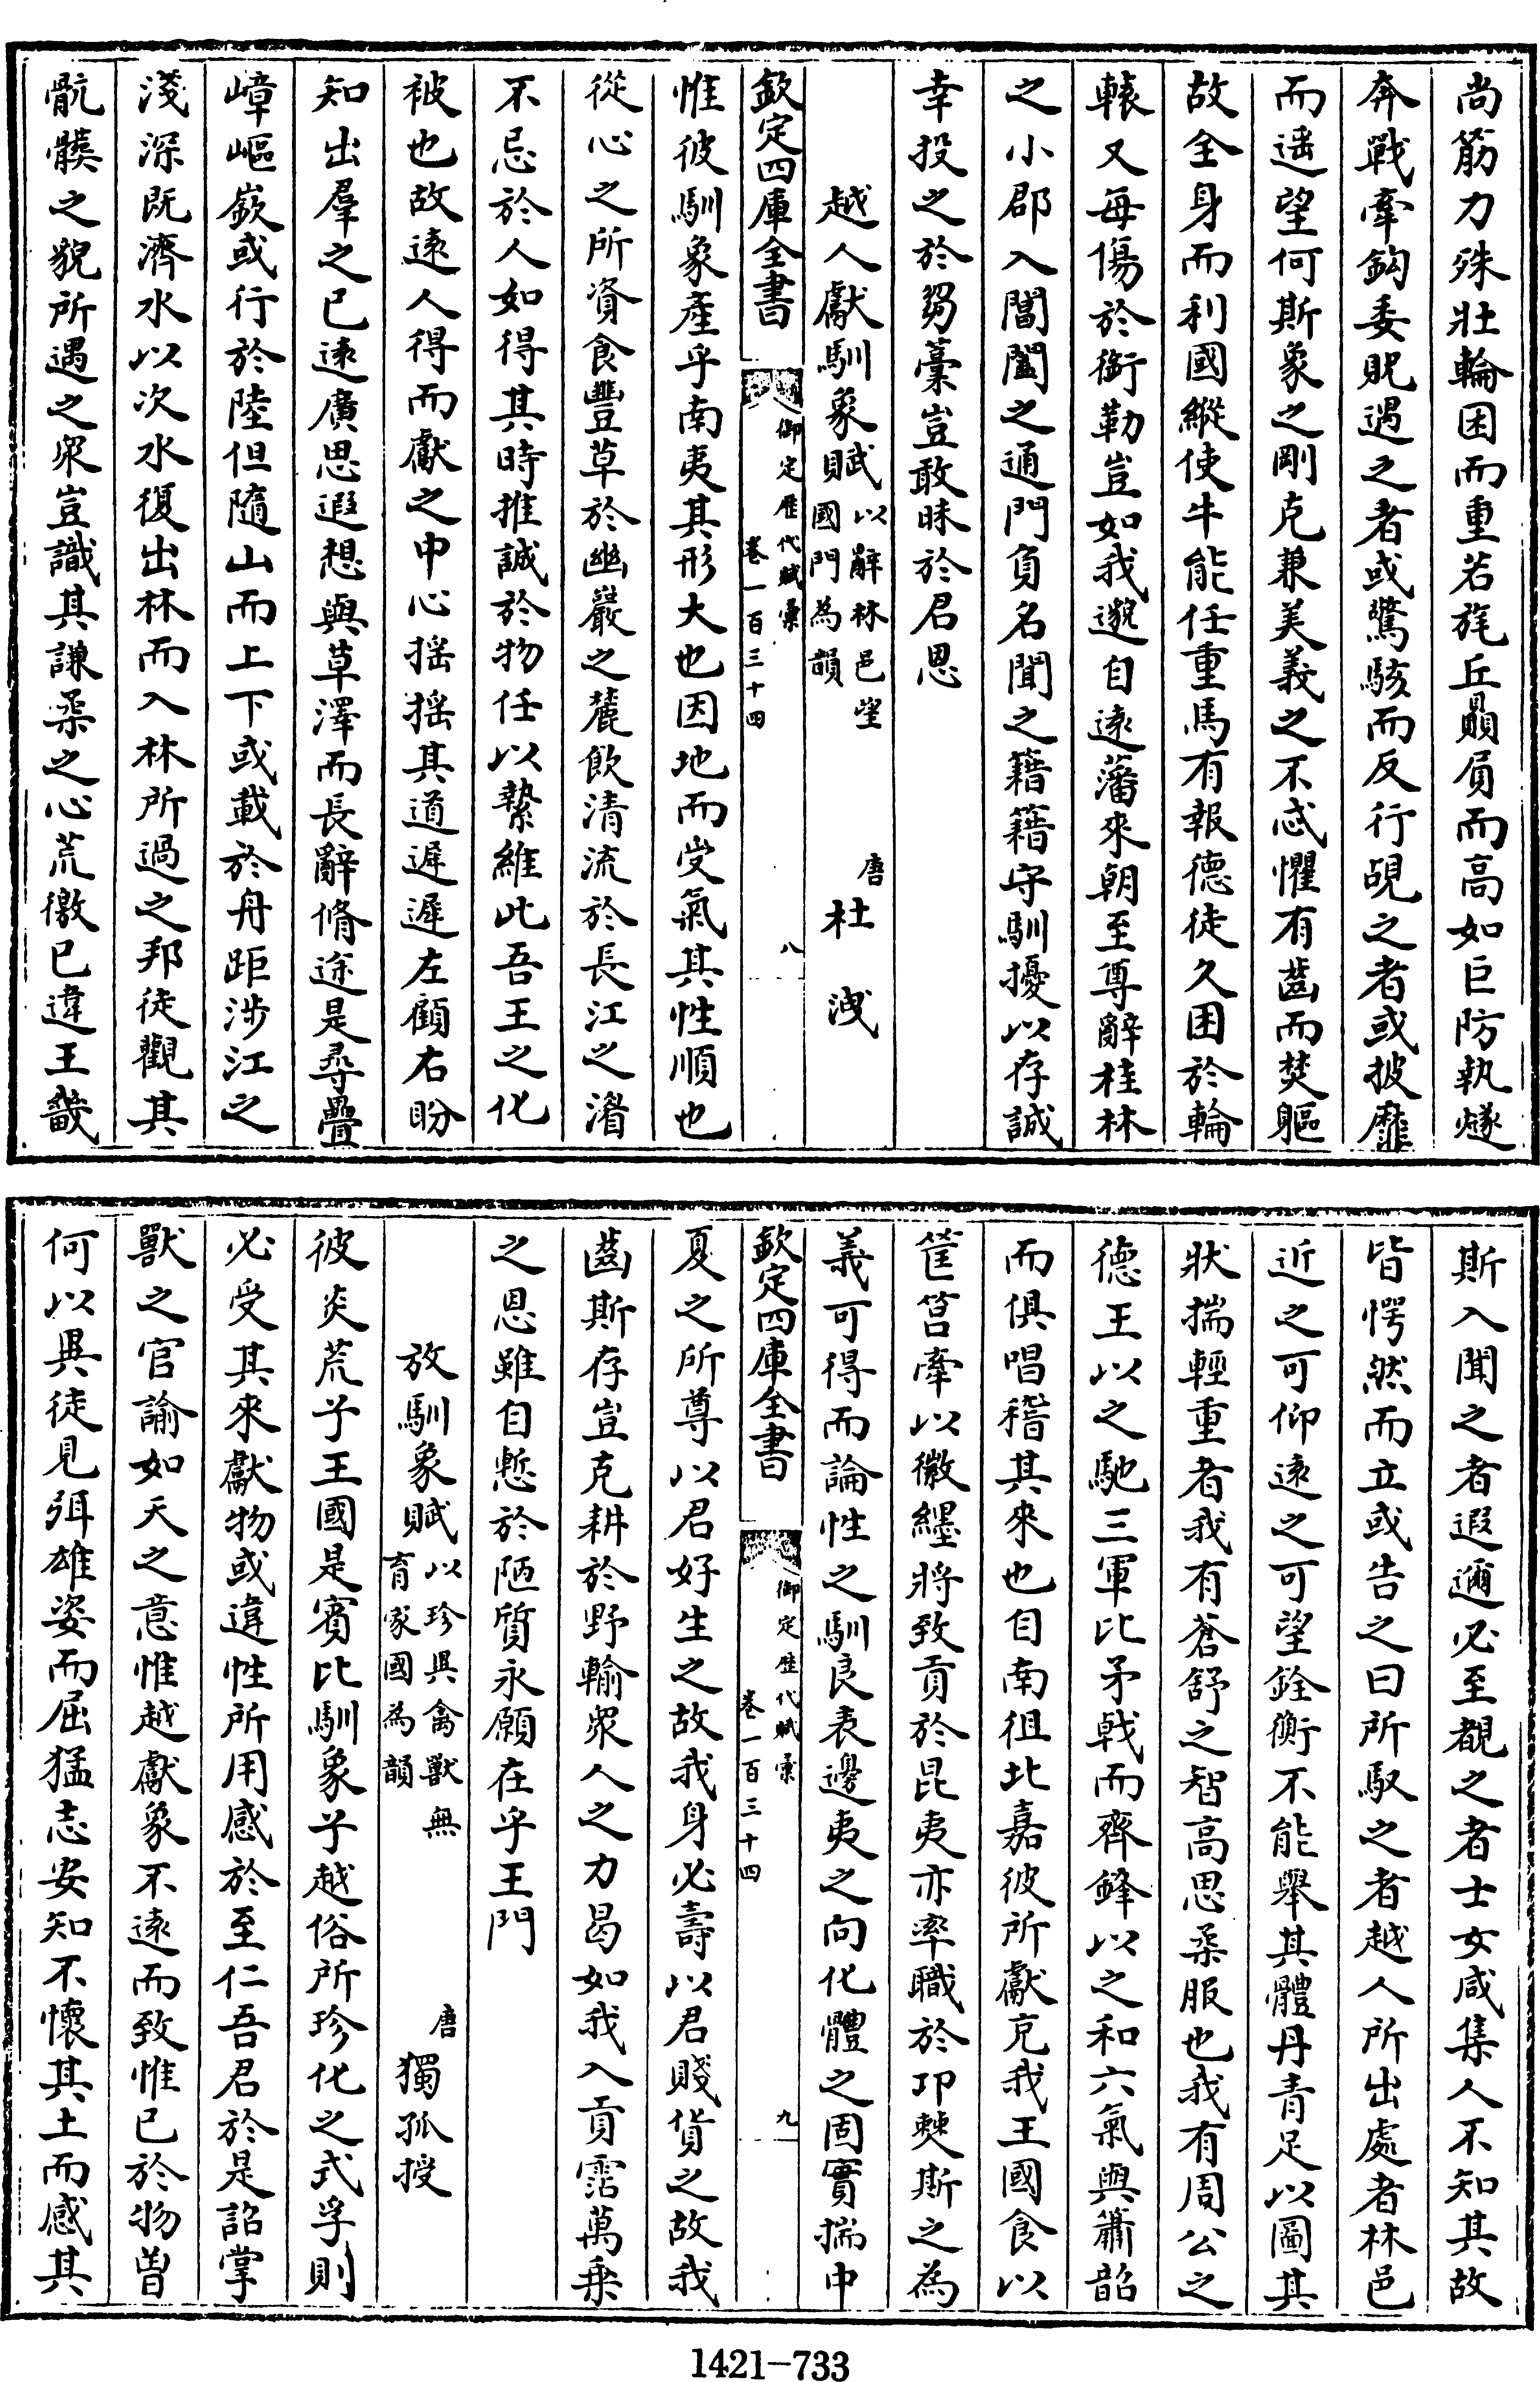 尚筋力殊壯輪囷而重若旄丘贔屓而高如巨防執燧
奔戰牽鈎委貺遇之者或驚駭而反行覩之者或披靡
而遥望何斯象之剛克兼美義之不忒懼有齒而焚軀
故全身而利國縱使牛能任重馬有報德徒久困於輪
轅又每傷於銜勒豈如我邈自遠藩來朝至尊辭桂林
之小郡入閶闔之通門負名聞之籍籍守馴擾以存誠
幸投之於芻藁豈敢昧於君恩
越人獻馴象賦以辭林邑望國門為韻 唐 杜洩
欽定四庫全書 御定歷代賦彙 卷一百三十四 八
惟彼馴象產乎南夷其形大也因地而受氣其性順也
從心之所資食豐草於幽巖之麓飲清流於長江之湄
不忌於人如得其時推誠於物任以縶維此吾王之化
被也故遠人得而獻之中心摇摇其道遲遲左顧右盼
知出羣之已遠廣思遐想與草澤而長辭脩途是尋疊
嶂嶇嶔或行於陸但隨山而上下或載於舟距涉江之
淺深既濟水以次水復出林而入林所過之邦徒觀其
骯髒之貌所遇之衆豈識其謙柔之心荒徼已違王畿
斯入聞之者遐邇必至覩之者士女咸集人不知其故
皆愕然而立或告之曰所馭之者越人所出處者林邑
近之可仰遠之可望銓衡不能舉其體丹青足以圖其
狀揣輕重者我有蒼舒之智高思柔服也我有周公之
德王以之馳三軍比矛戟而齊鋒以之和六氣與簫韶
而俱唱稽其來也自南徂北嘉彼所獻克我王國食以
筐筥牽以徽纆將致貢於昆夷亦率職於卭僰斯之為
義可得而論性之馴良表邊夷之向化體之固實揣中
欽定四庫全書 御定歷代賦彙 卷一百三十四 九
夏之所尊以君好生之故我身必壽以君賤貨之故我
齒斯存豈克耕於野輸衆人之力曷如我入貢霑萬乗
之恩雖自慙於陋質永願在乎王門
放馴象賦以珍異禽獸無育家國為韻 唐 獨孤授
彼炎荒兮王國是賓比馴象兮越俗所珍化之式孚則
必受其來獻物或違性所用感於至仁吾君於是詔掌
獸之官諭如天之意惟越獻象不遠而致惟已於物曽
何以異徒見弭雄姿而屈猛志安知不懷其土而感其
1421-733